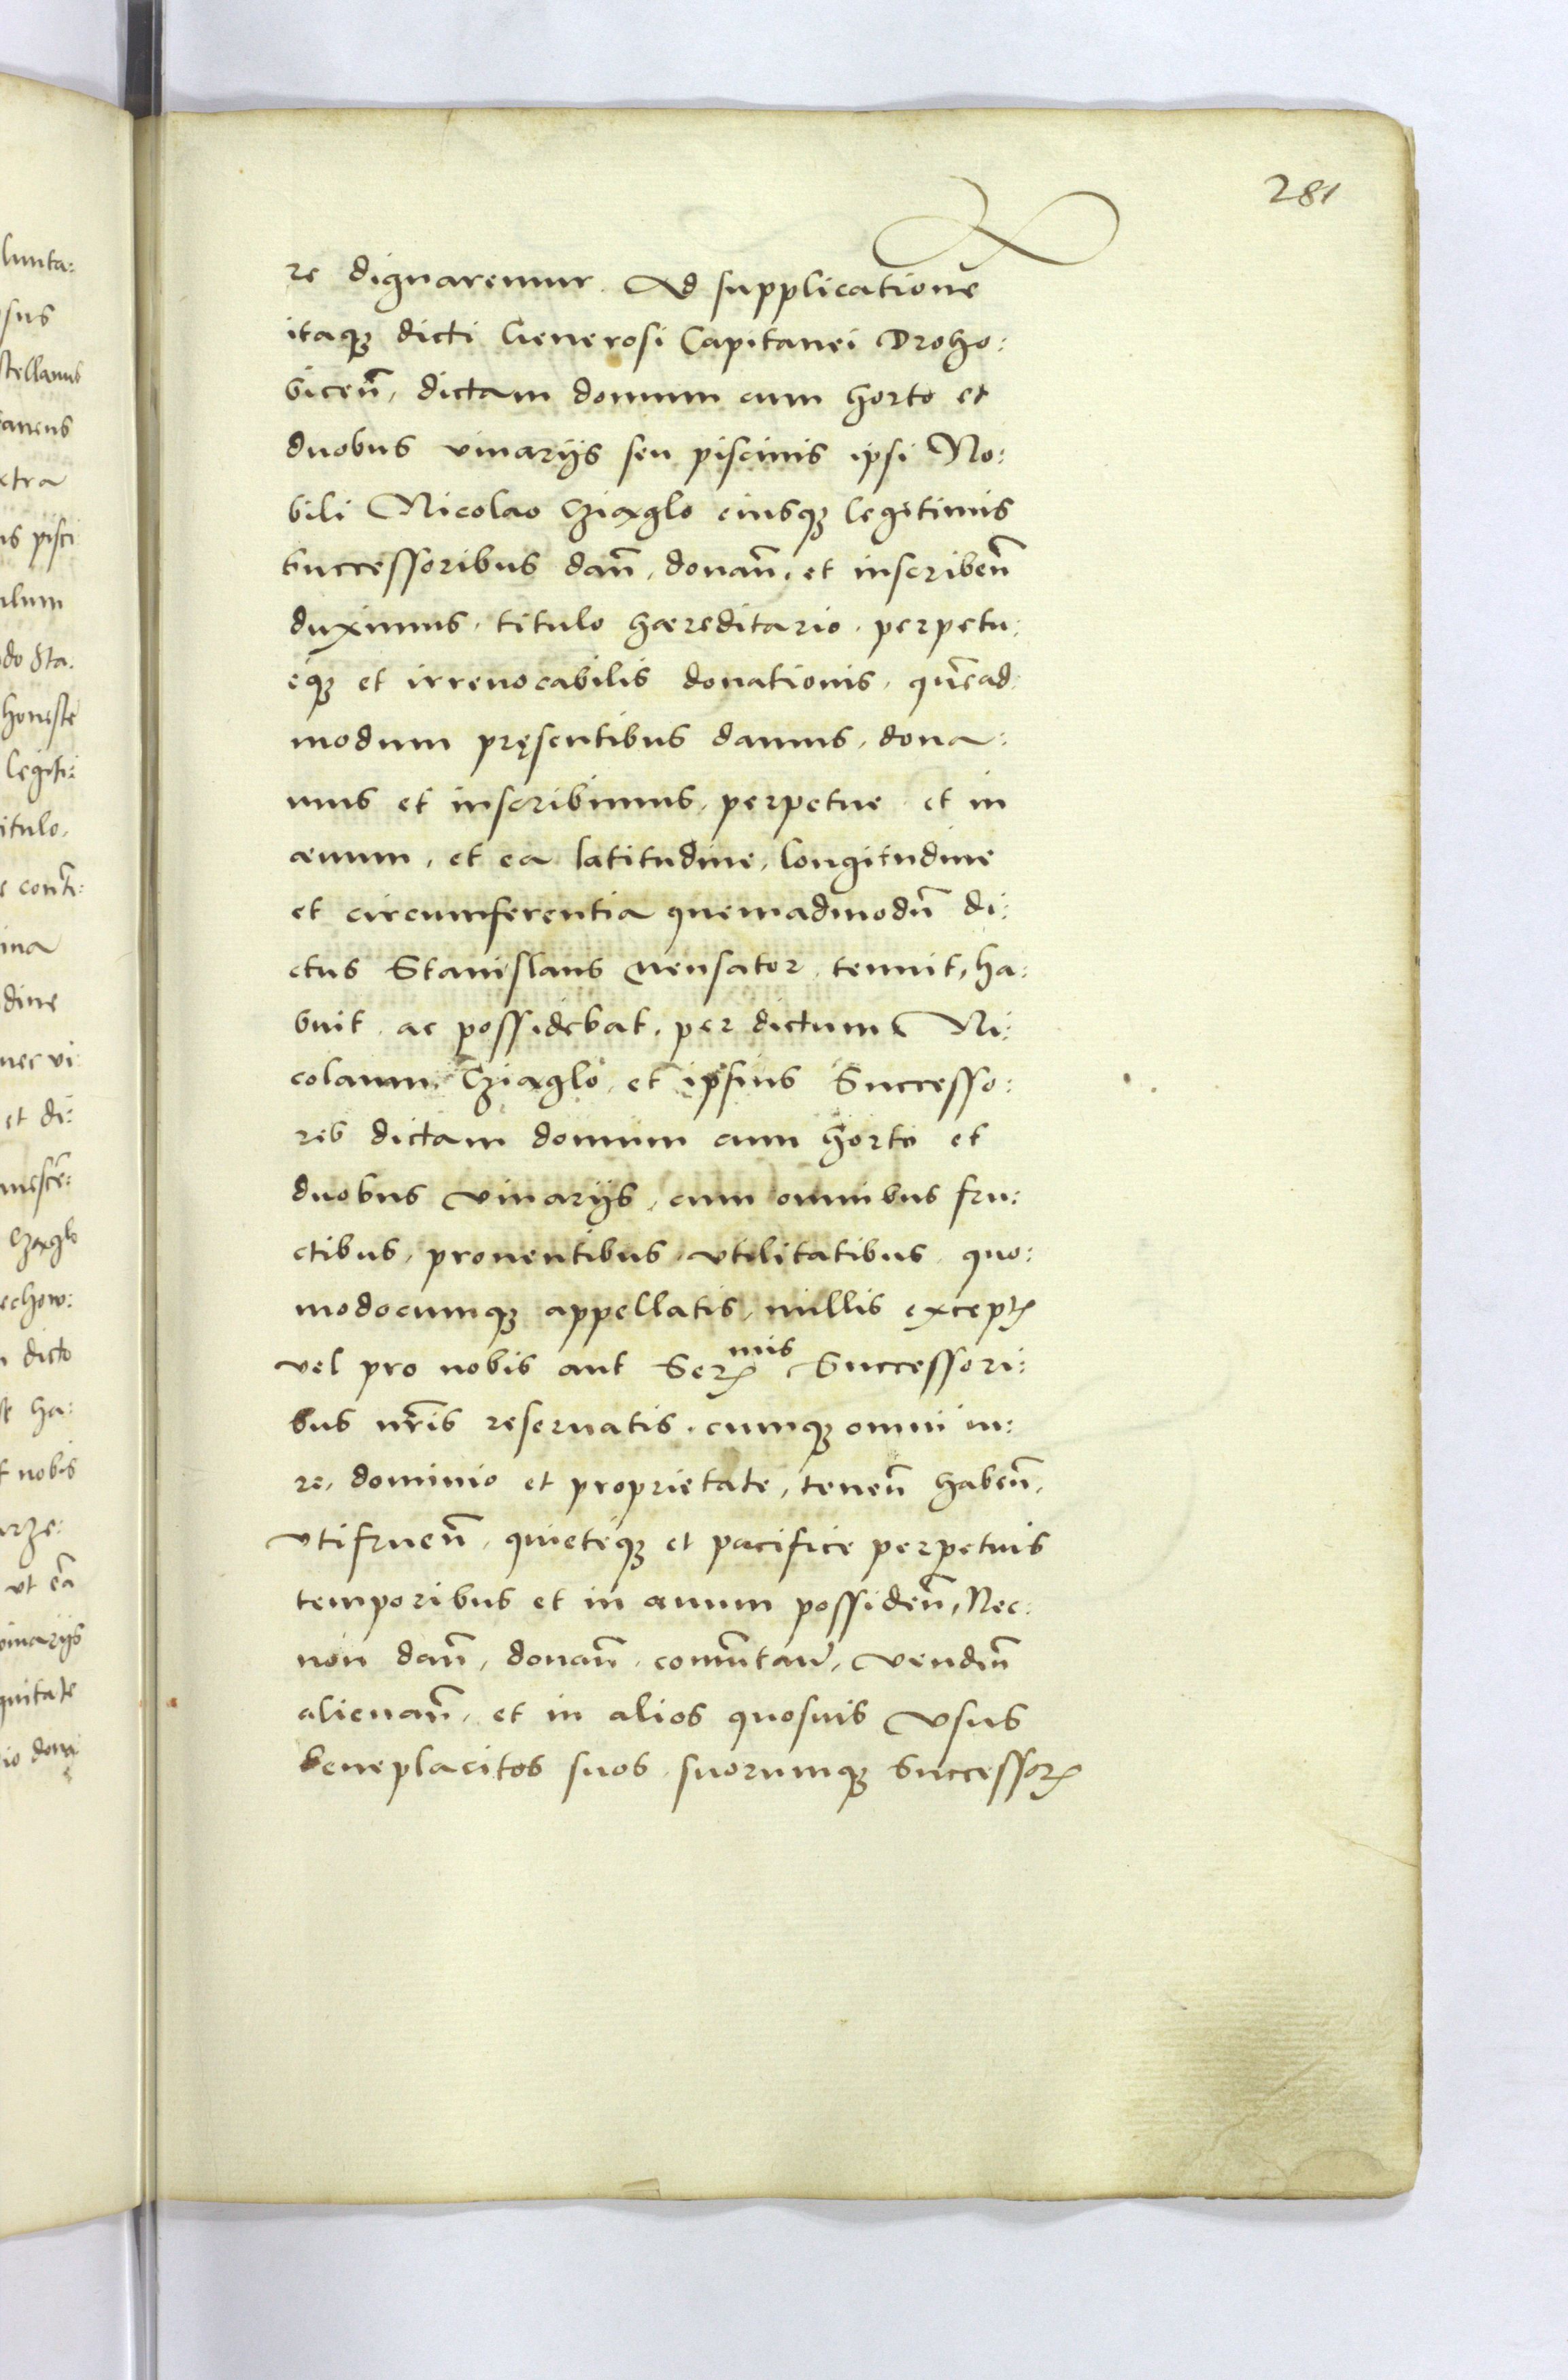 281
re dignaremur. Ad supplicationē
itaqꝫ dicti Generosi Capitanei Droho:
biceñ, dictam domum cum horto et
duobus viuarijs seu piscinis ipsi No:
bili Nicolao Cziaglo eiusqꝫ legitimis
Successoribus dañ, donañ, et inscribeñ
duximus, titulo haereditario, perpetu:
eqꝫ et irreuocabilis donationis, quēad:
modum pręsentibus damus, dona:
mus et inscribimus, perpetue et in
aeuum, et ea latitudine, longitudine
et circumferentia quemadmodū di:
ctus Stanislaus mensator tenuit, ha:
buit ac possidebat, per dictum Ni:
colaum Cziaglo et ipsius Successo:
res dictam domum cum horto et
duobus viuarijs, cum omnibus fru:
ctibus, prouentibus, vtilitatibus quo:
modocumqꝫ appellatis, nullis exceptꝭ
vel pro nobis aut Serꝫmis Successori:
bus nr̄is reseruatis, cumqꝫ omni iu:
re, dominio et proprietate, teneñ habeñ,
vtifrueñ, quieteqꝫ et pacifice perpetuis
temporibus et in aeuum possideñ, Nec:
non dañ, donañ, com̄utañ, vendeñ
alienañ, et in alios quosuis vsus
beneplacitos suos, suorumqꝫ Successorꝫ
lunta:
sus
stellanus
taneus
xtra
is pisci
ulum
do Sta:
honeste
legiti:
itulo,
ina
dine
nec vi:
et di:
Czaglo
echow:
dicto
ha:
nobis
arze:
vt eā
viuarijs
quitate